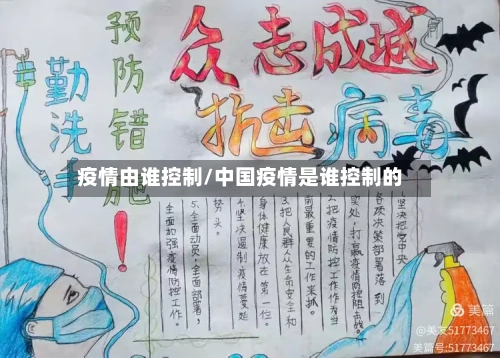 众志成城
抗击病毒
预防错施!
勤洗手
疫情由谁控制/中国疫情是谁控制的
坚决把党中央
各项决策部署落到
实处,打赢疫情防控阻击战。
2.把疫情防控工作作为当
前最重要的工作来抓。
3.把人民群众生命安全和
身体健康放在第一位。
4.坚决遏制疫情蔓延
势头。
5.全面动员,全面部署,
全面加强疫情防控工作。
美篇
@美友51773467
美篇号:51773467